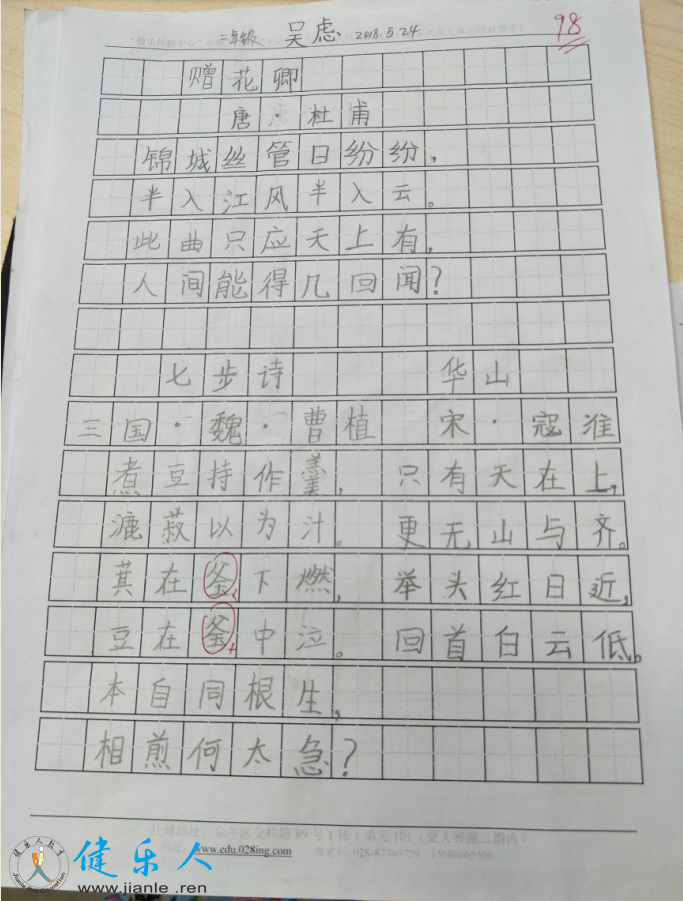 二年级 吴虑 2018.5.24 98
赠花卿
唐·杜甫
锦城丝管日纷纷,
半入江风半入云。
此曲只应天上有,
人间能得几回闻?
七步诗 华山
三国·魏·曹植 宋·寇准
煮豆持作羹, 只有天在上,
漉菽以为汁。 更无山与齐。
萁在釜下燃, 举头红日近,
豆在釜中泣。 回首白云低。
本自同根生,
相煎何太急?
www.edu.028ing.com
健乐人教育
健乐人
www.jianle.ren